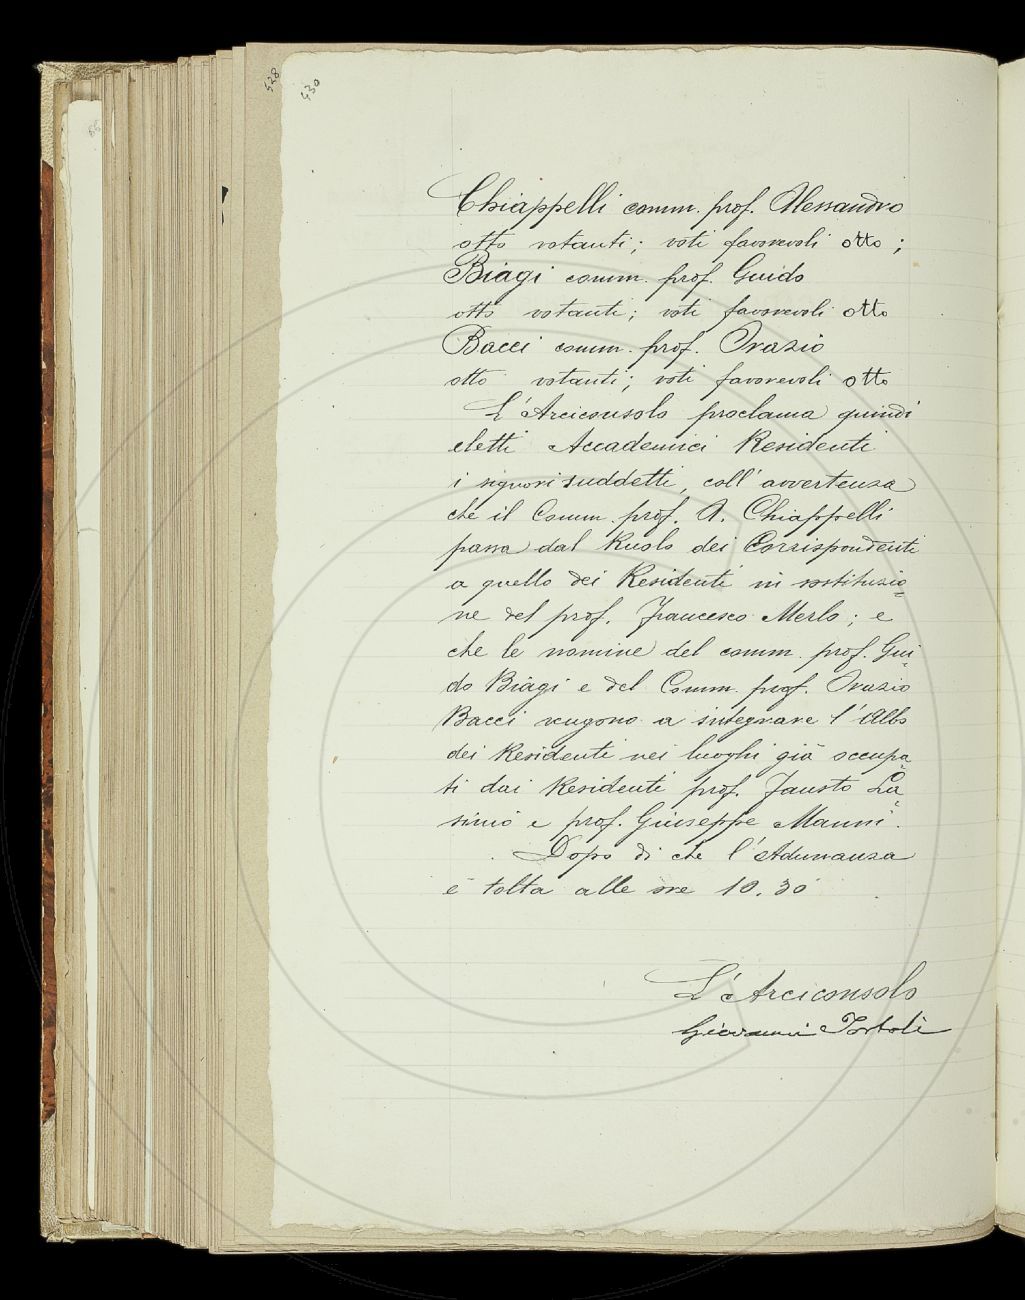 428
430
Chiappelli comm. prof. Alessandro
otto votanti; voti favorevoli otto;
Biagi comm. prof. Guido
otto votanti; voti favorevoli otto
Bacci comm. prof. Orazio
otto votanti; voti favorevoli otto
L'Arciconsolo proclama quindi
eletti Accademici Residenti
i signori suddetti, coll'avvertenza
che il Comm. prof. A. Chiappelli
passa dal Ruolo dei Corrispondenti
a quello dei Residenti in sostituzio=
ne del prof. Francesco Merlo; e
che le nomine del comm. prof. Gui=
do Biagi e del Comm. prof. Orazio
Bacci vengono a integrare l'Albo
dei Residenti nei luoghi già occupa=
ti dai Residenti prof. Fausto La=
sinio e prof. Giuseppe Manni.
Dopo di che l'Adunanza
è tolta alle ore 10.30
L'Arciconsolo
Giovanni Tortoli